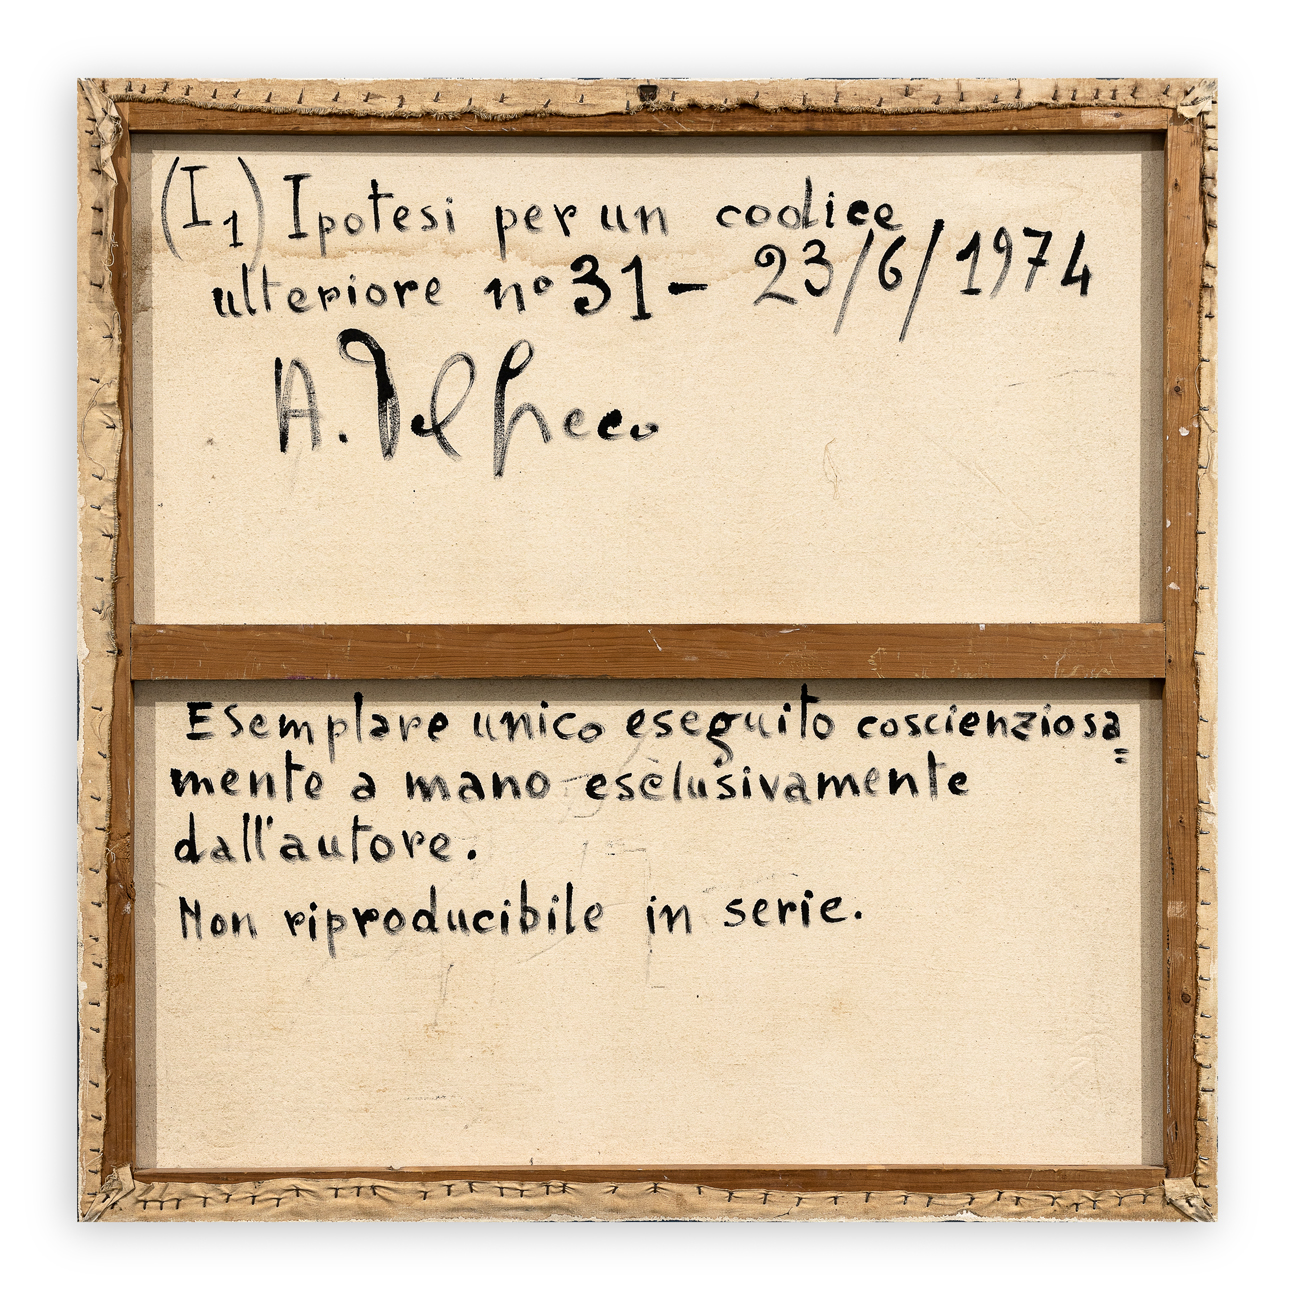 (I₁) Ipotesi per un codice
ulteriore nº 31 - 23/6/1974
A. Del Greco
Esemplare unico eseguito coscienziosa=
mente a mano esclusivamente
dall'autore.
Non riproducibile in serie.